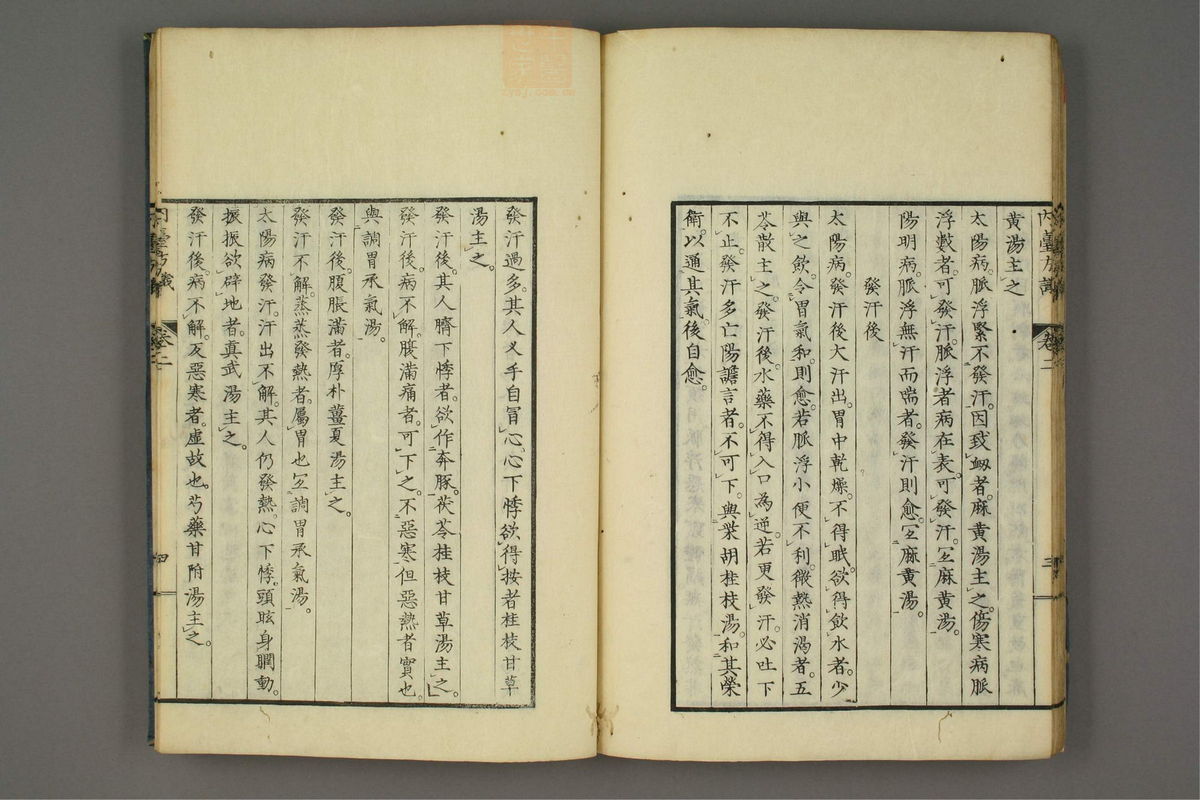 黃湯主之
太陽病脈浮緊不發汗因致衂者麻黃湯主之傷寒病脈
浮數者可發汗脈浮者病在表可發汗宜麻黃湯
陽明病脈浮無汗而喘者發汗則愈宜麻黃湯
發汗後
太陽病發汗後大汗出胃中乾燥不得眠欲得飲水者少
與之飲令胃氣和則愈若脈浮小便不利微熱消渴者五
苓散主之發汗後水藥不得入口為逆若更發汗必吐下
不止發汗多亡陽譫言者不可下與柴胡桂枝湯和其榮
衛以通其氣後自愈
卷二
三
發汗過多其人叉手自冒心心下悸欲得按者桂枝甘草
湯主之
發汗後其人臍下悸者欲作奔豚茯苓桂枝甘草湯主之
發汗後病不解腹滿痛者可下之不惡寒但惡熱者實也
與調胃承氣湯
發汗後腹脹滿者厚朴薑夏湯主之
發汗不解蒸蒸發熱者屬胃也宜調胃承氣湯
太陽病發汗汗出不解其人仍發熱心下悸頭眩身瞤動
振振欲擗地者真武湯主之
發汗後病不解反惡寒者虛故也芍藥甘附湯主之
卷二
四